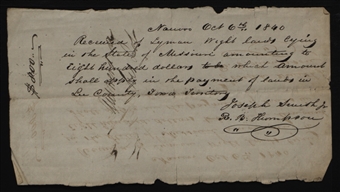 Nauvoo Oct 6th 1840
Received of Lyman Wight lands lying
in the State of Missouri amounting to
Eight hundred dollars which amount
shall apply in the payment of lands in
Lee County, Iowa Territory
Joseph Smith Jr